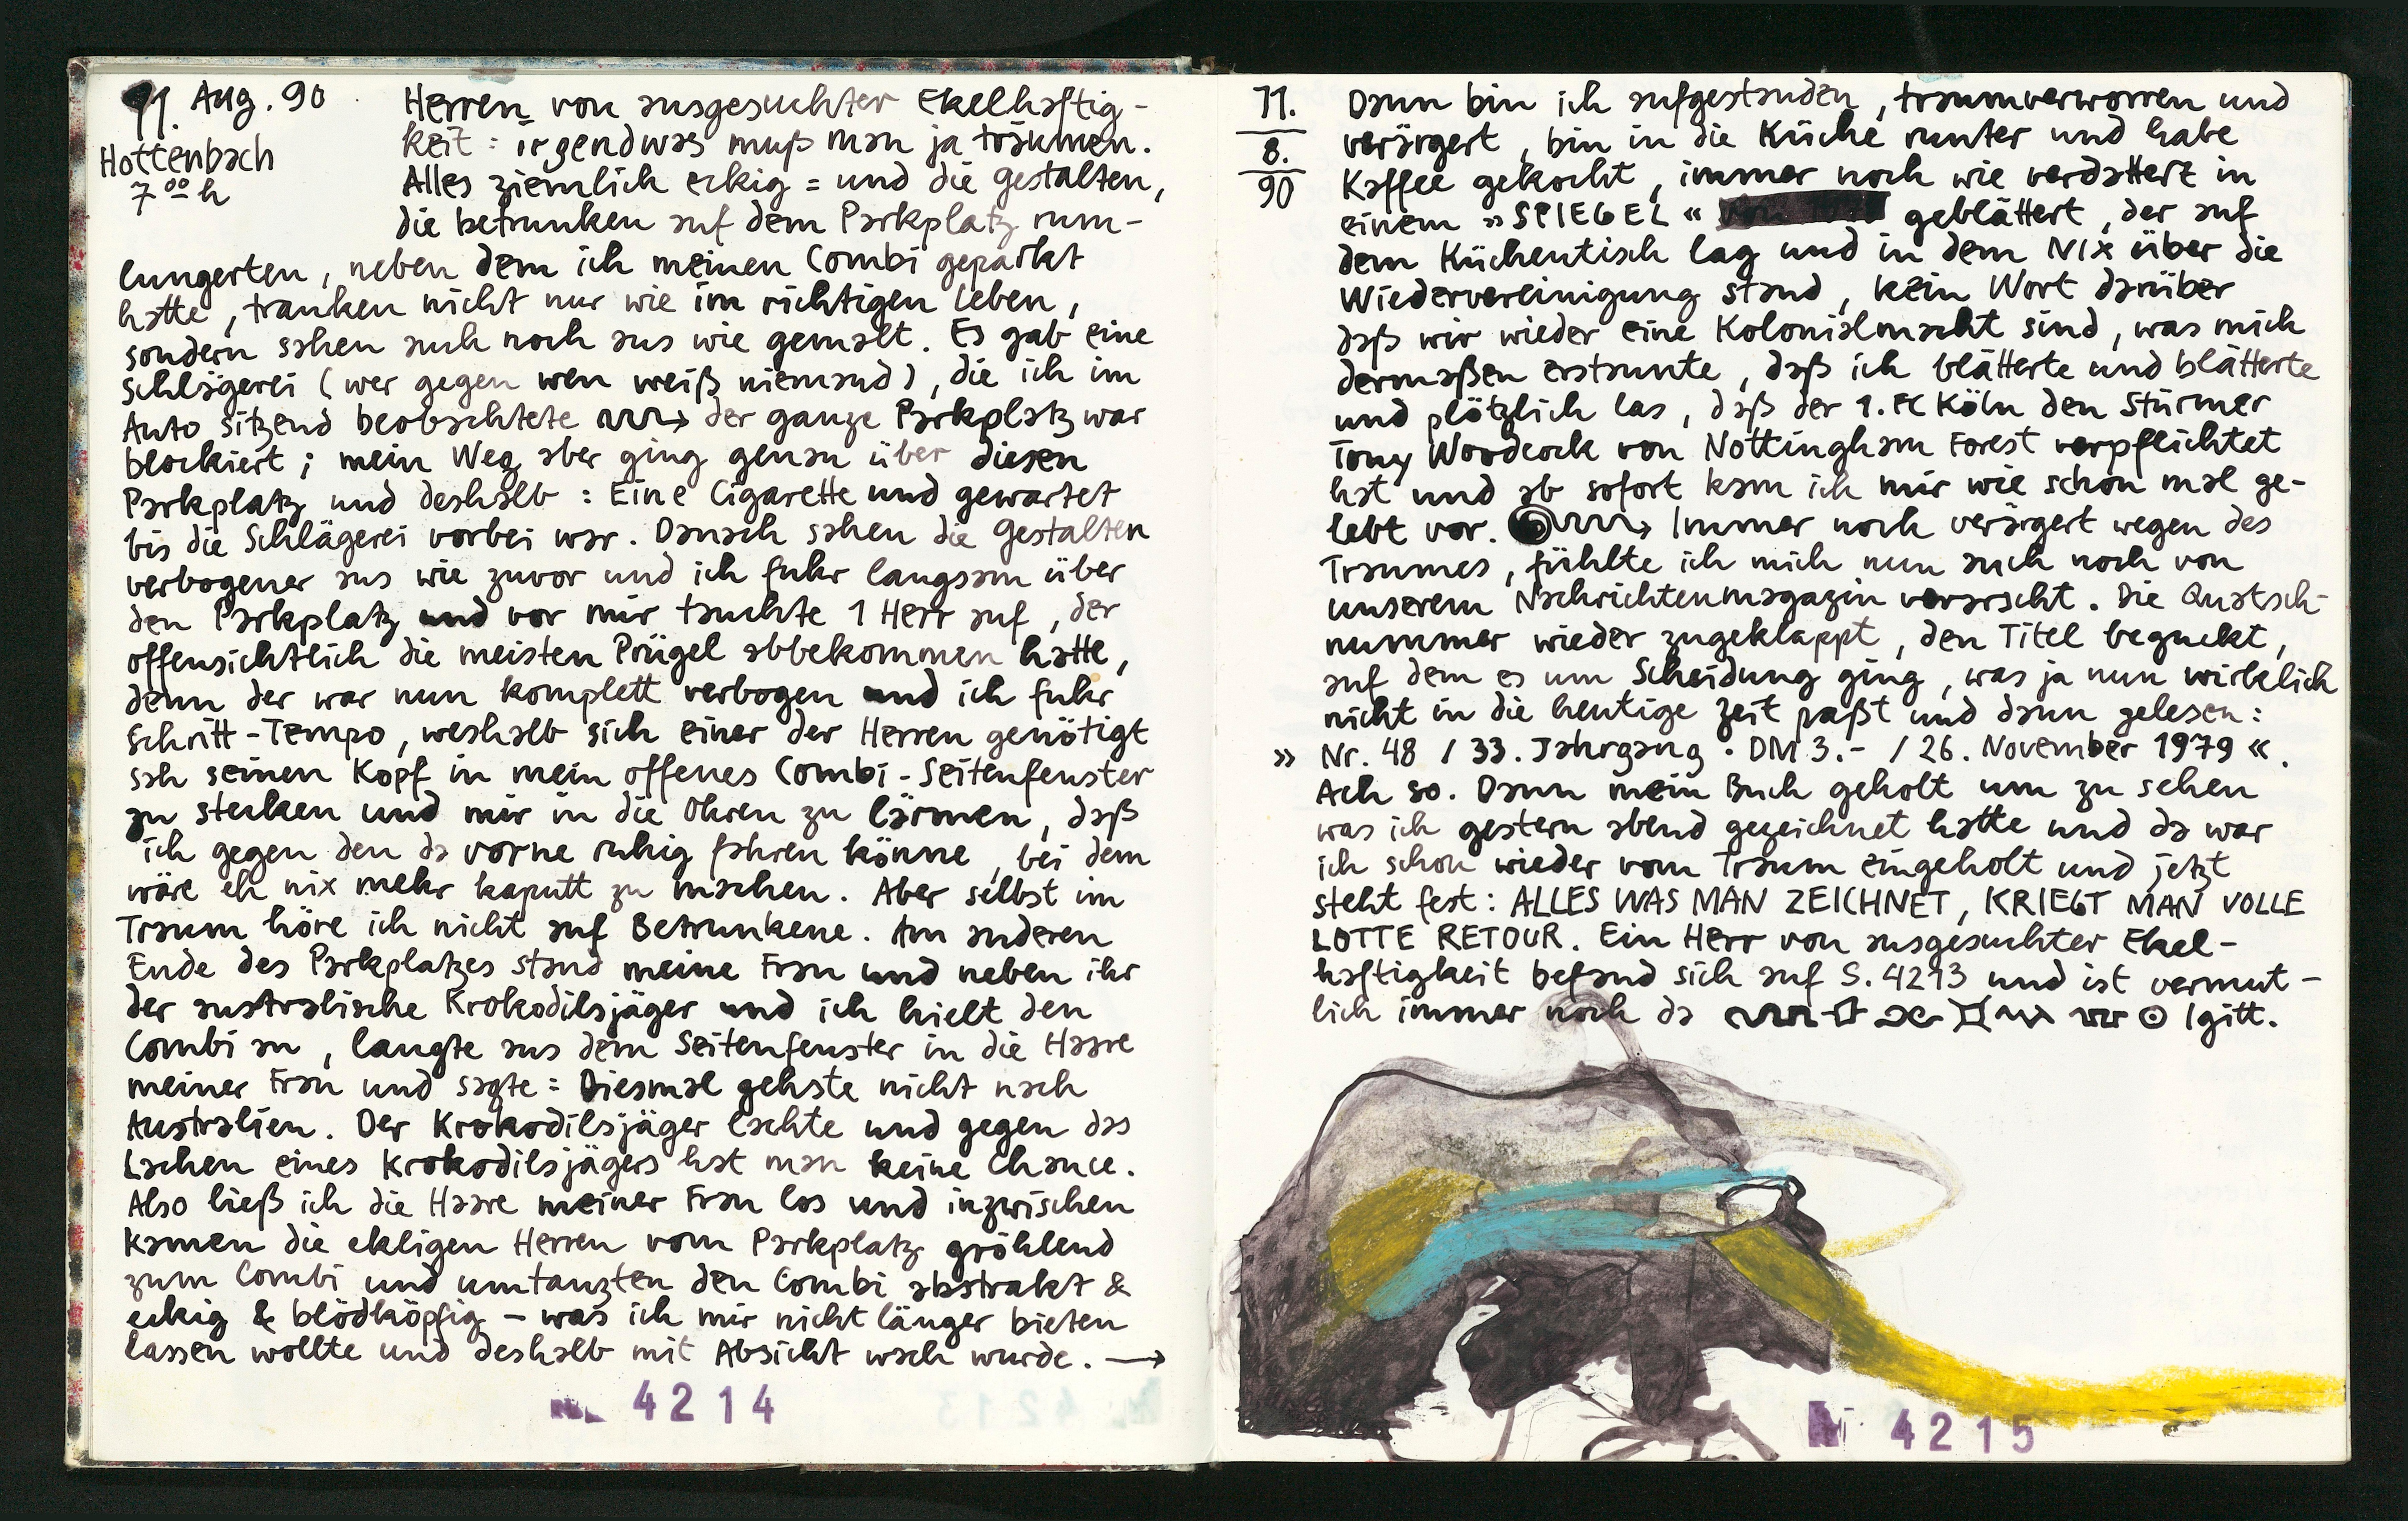 11. Aug. 90
Hottenbach
7⁰⁰ h
Herren von ausgesuchter Ekelhaftig-
keit: irgendwas muß man ja träumen.
Alles ziemlich eckig = und die Gestalten,
die betrunken auf dem Parkplatz rum-
lungerten, neben dem ich meinen Combi geparkt
hatte, tranken nicht nur wie im richtigen Leben,
sondern sahen auch noch aus wie gemalt. Es gab eine
Schlägerei (wer gegen wen weiß niemand), die ich im
Auto sitzend beobachtete → der ganze Parkplatz war
blockiert; mein Weg aber ging genau über diesen
Parkplatz und deshalb: Eine Cigarette und gewartet
bis die Schlägerei vorbei war. Danach sahen die Gestalten
verbogener aus wie zuvor und ich fuhr langsam über
den Parkplatz und vor mir tauchte 1 Herr auf, der
offensichtlich die meisten Prügel abbekommen hatte,
denn der war nun komplett verbogen und ich fuhr
Schritt-Tempo, weshalb sich einer der Herren genötigt
sah seinen Kopf in mein offenes Combi-Seitenfenster
zu stecken und mir in die Ohren zu lärmen, daß
ich gegen den da vorne ruhig fahren könne, bei dem
wäre eh nix mehr kaputt zu machen. Aber selbst im
Traum höre ich nicht auf Betrunkene. Am anderen
Ende des Parkplatzes stand meine Frau und neben ihr
der australische Krokodilsjäger und ich hielt den
Combi an, langte aus dem Seitenfenster in die Haare
meiner Frau und sagte: Diesmal gehste nicht nach
Australien. Der Krokodilsjäger lachte und gegen das
Lachen eines Krokodilsjägers hat man keine Chance.
Also ließ ich die Haare meiner Frau los und inzwischen
kamen die ekligen Herren vom Parkplatz gröhlend
zum Combi und umtanzten den Combi abstrakt &
eckig & blödköpfig – was ich mir nicht länger bieten
lassen wollte und deshalb mit Absicht wach wurde. →
4214
11.
8.
90
Dann bin ich aufgestanden, traumverworren und
verärgert, bin in die Küche runter und habe
Kaffee gekocht, immer noch wie verdattert in
einem »SPIEGEL« geblättert, der auf
dem Küchentisch lag und in dem NIX über die
Wiedervereinigung stand, kein Wort darüber
daß wir wieder eine Kolonialmacht sind, was mich
dermaßen erstaunte, daß ich blätterte und blätterte
und plötzlich las, daß der 1. FC Köln den Stürmer
Tony Woodcock von Nottingham Forest verpflichtet
hat und ab sofort kam ich mir wie schon mal ge-
lebt vor. → Immer noch verärgert wegen des
Traumes, fühlte ich mich nun auch noch von
unserem Nachrichtenmagazin verarscht. Die Quatsch-
nummer wieder zugeklappt, den Titel beguckt,
auf dem es um Scheidung ging, was ja nun wirklich
nicht in die heutige Zeit paßt und dann gelesen:
» Nr. 48 / 33. Jahrgang · DM 3.- / 26. November 1979 «.
Ach so. Dann mein Buch geholt um zu sehen
was ich gestern abend gezeichnet hatte und da war
ich schon wieder vom Traum eingeholt und jetzt
steht fest: ALLES WAS MAN ZEICHNET, KRIEGT MAN VOLLE
LOTTE RETOUR. Ein Herr von ausgesuchter Ekel-
haftigkeit befand sich auf S. 4213 und ist vermut-
lich immer noch da Igitt.
4215